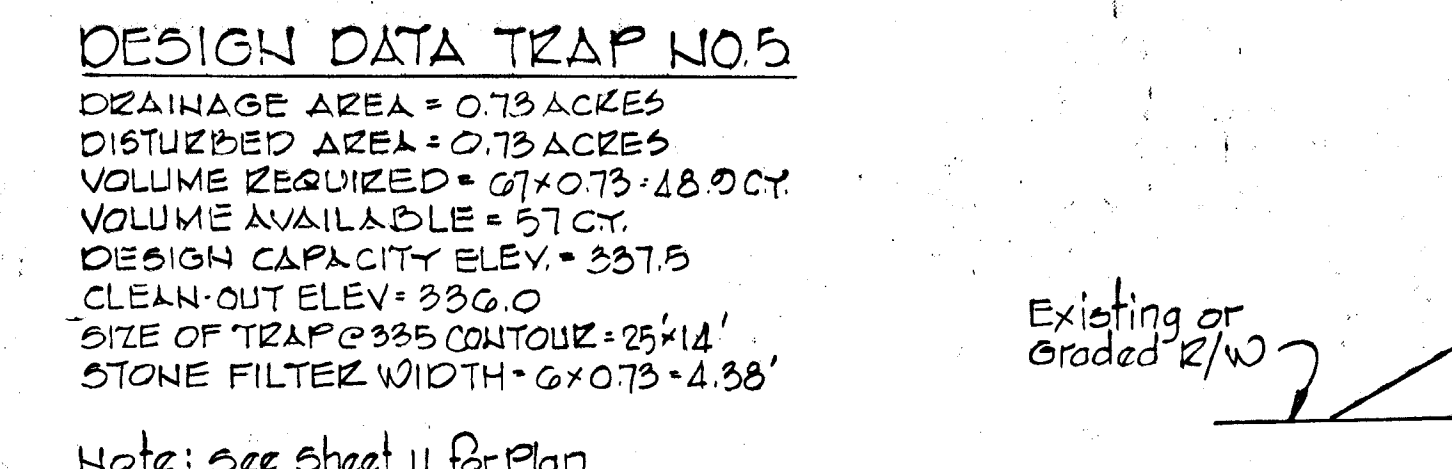 DESIGN DATA TRAP NO.5
DRAINAGE AREA = 0.73 ACRES
DISTURBED AREA = 0.73 ACRES
VOLUME REQUIRED = 67 x 0.73 = 48.9 C.Y.
VOLUME AVAILABLE = 57 C.Y.
DESIGN CAPACITY ELEV. = 337.5
CLEAN-OUT ELEV = 336.0
SIZE OF TRAP @ 335 CONTOUR = 25' x 14'
STONE FILTER WIDTH = 6 x 0.73 = 4.38'
Note: See Sheet 11 for Plan
Existing or
Graded R/W